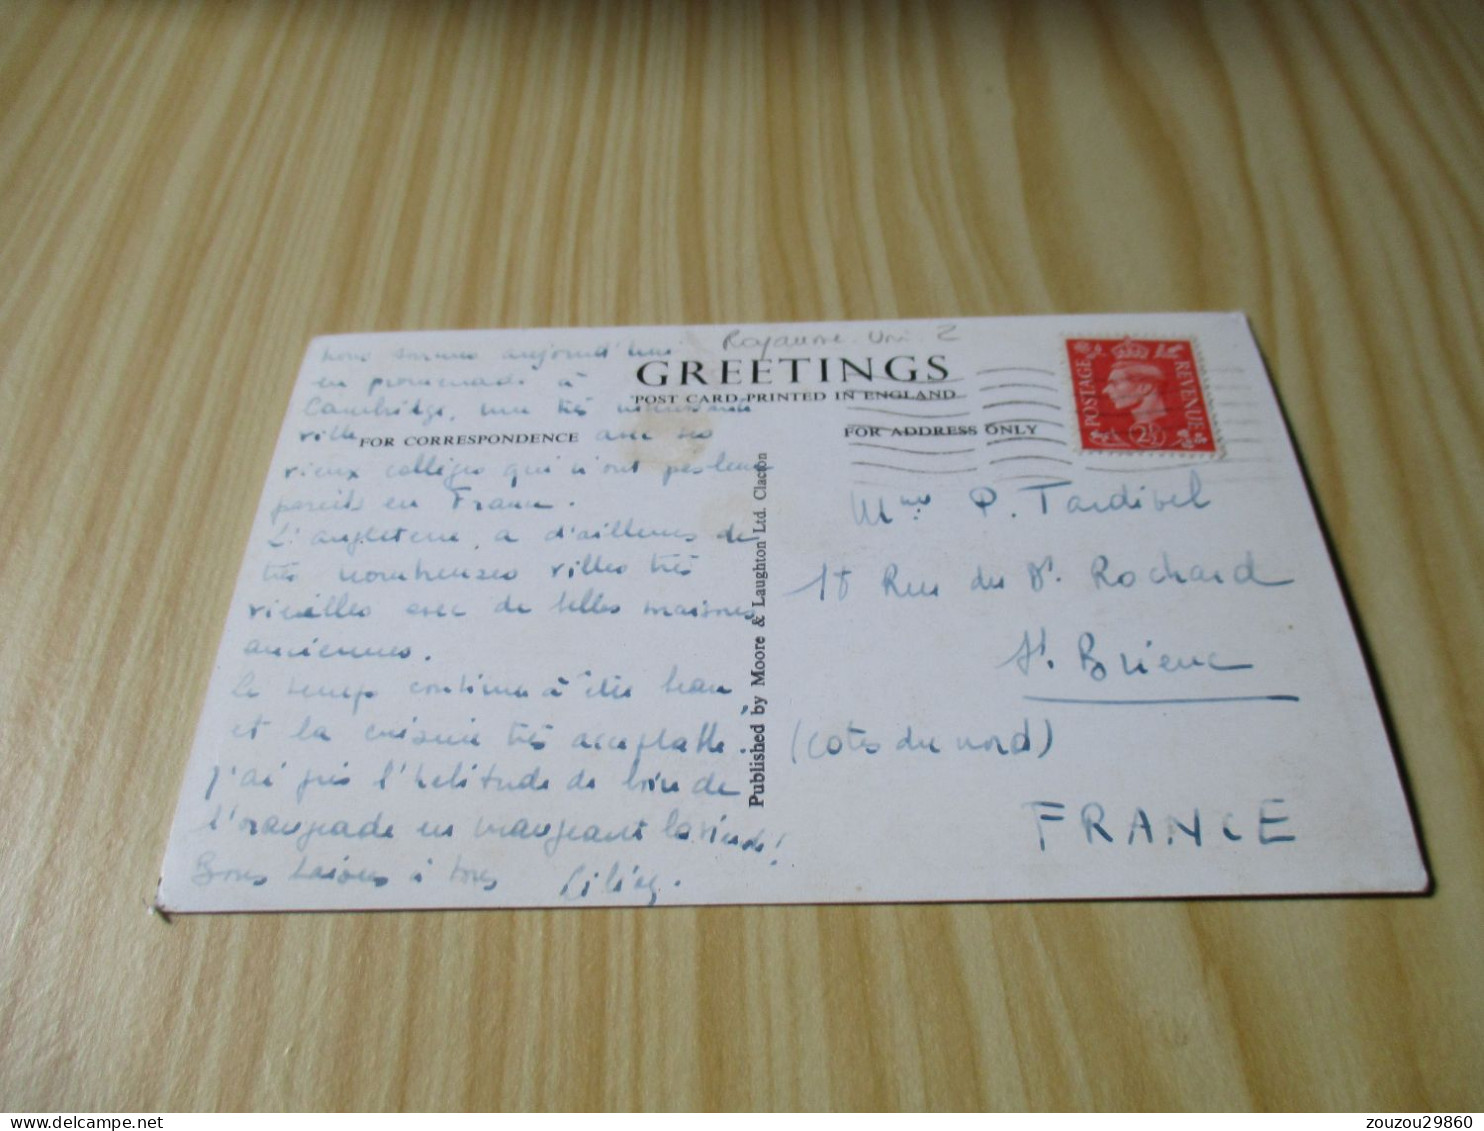 Royaume. Uni 2
GREETINGS
POST CARD PRINTED IN ENGLAND
FOR CORRESPONDENCE
FOR ADDRESS ONLY
POSTAGE REVENUE
2½
Nous sommes aujourd'hui
en promenade à
Cambridge, une très intéressante
ville avec ses
vieux collèges qui n'ont pas leur
pareils en France.
L'angleterre a d'ailleurs de
très nombreuses villes très
vieilles avec de belles maisons
anciennes.
Le temps continue à être beau,
et la cuisine très acceptable.
J'ai pris l'habitude de boire de
l'orangeade en mangeant la viande!
Bons baisers à tous Liliey.
Published by Moore & Laughton Ltd. Clacton
Mme P. Tardivel
18 Rue du Dr. Rochard
St. Brieuc
(Cotes du nord)
FRANCE
zouzou29860
delcampe.net